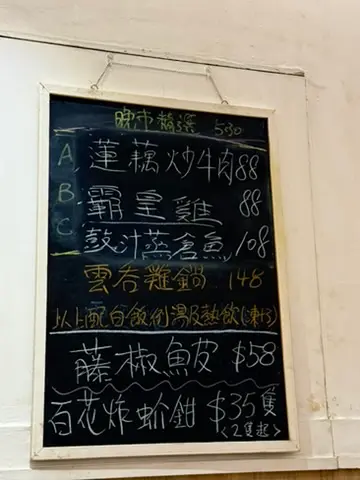 晚市精選 5:30
A 蓮藕炒牛肉 88
B 霸皇雞 88
C 豉汁蒸倉魚 108
雲吞雞鍋 148
以上配白飯例湯及熱飲(凍+3)
藤椒魚皮 $58
百花炸蚧鉗 $35隻
<2隻起>